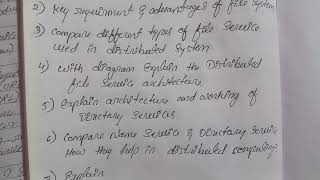 2) Key requirement & advantages of file system
3) compare different types of file service
used in distributed system
4) with diagram Explain the Distributed
file Service architecture
5) Explain architecture and working of
Directory Services
6) Compare Name Service & Directory Service
How they help in distributed computing
Explain